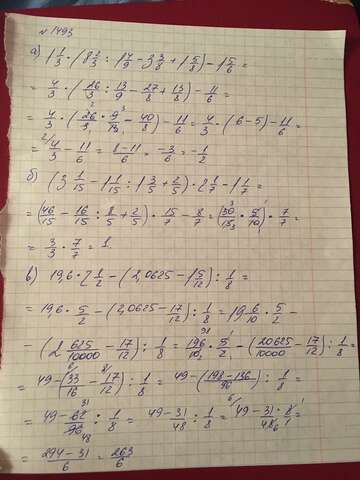 № 1493
а) 1 1/3 · (8 2/3 : 1 4/9 − 3 3/8 + 1 5/8) − 1 5/6 =
= 4/3 · (26/3 : 13/9 − 27/8 + 13/8) − 11/6 =
= 4/3 · (26/3 · 9/13 − 40/8) − 11/6 = 4/3 · (6 − 5) − 11/6 =
= 4/3 − 11/6 = 8−11/6 = −3/6 = −1/2
б) (3 1/15 − 1 1/15 : 1 3/5 + 2/5) · 2 1/7 − 1 1/7 =
= (46/15 − 16/15 : 8/5 + 2/5) · 15/7 − 8/7 = (30/15 · 5/10) · 7/7 =
= 3/3 · 7/7 = 1.
в) 19,6 · 2 1/2 − (2,0625 − 1 5/12) : 1/8 =
= 19,6 · 5/2 − (2,0625 − 17/12) : 1/8 = 19 6/10 · 5/2 −
− (2 625/10000 − 17/12) : 1/8 = 196/10 · 5/2 − (20625/10000 − 17/12) : 1/8 =
= 49 − (33/16 − 17/12) : 1/8 = 49 − (198−136/96) : 1/8 =
= 49 − 62/96 : 1/8 = 49−31/48 : 1/8 = 49−31/48 · 8/1 =
= 294−31/6 = 263/6